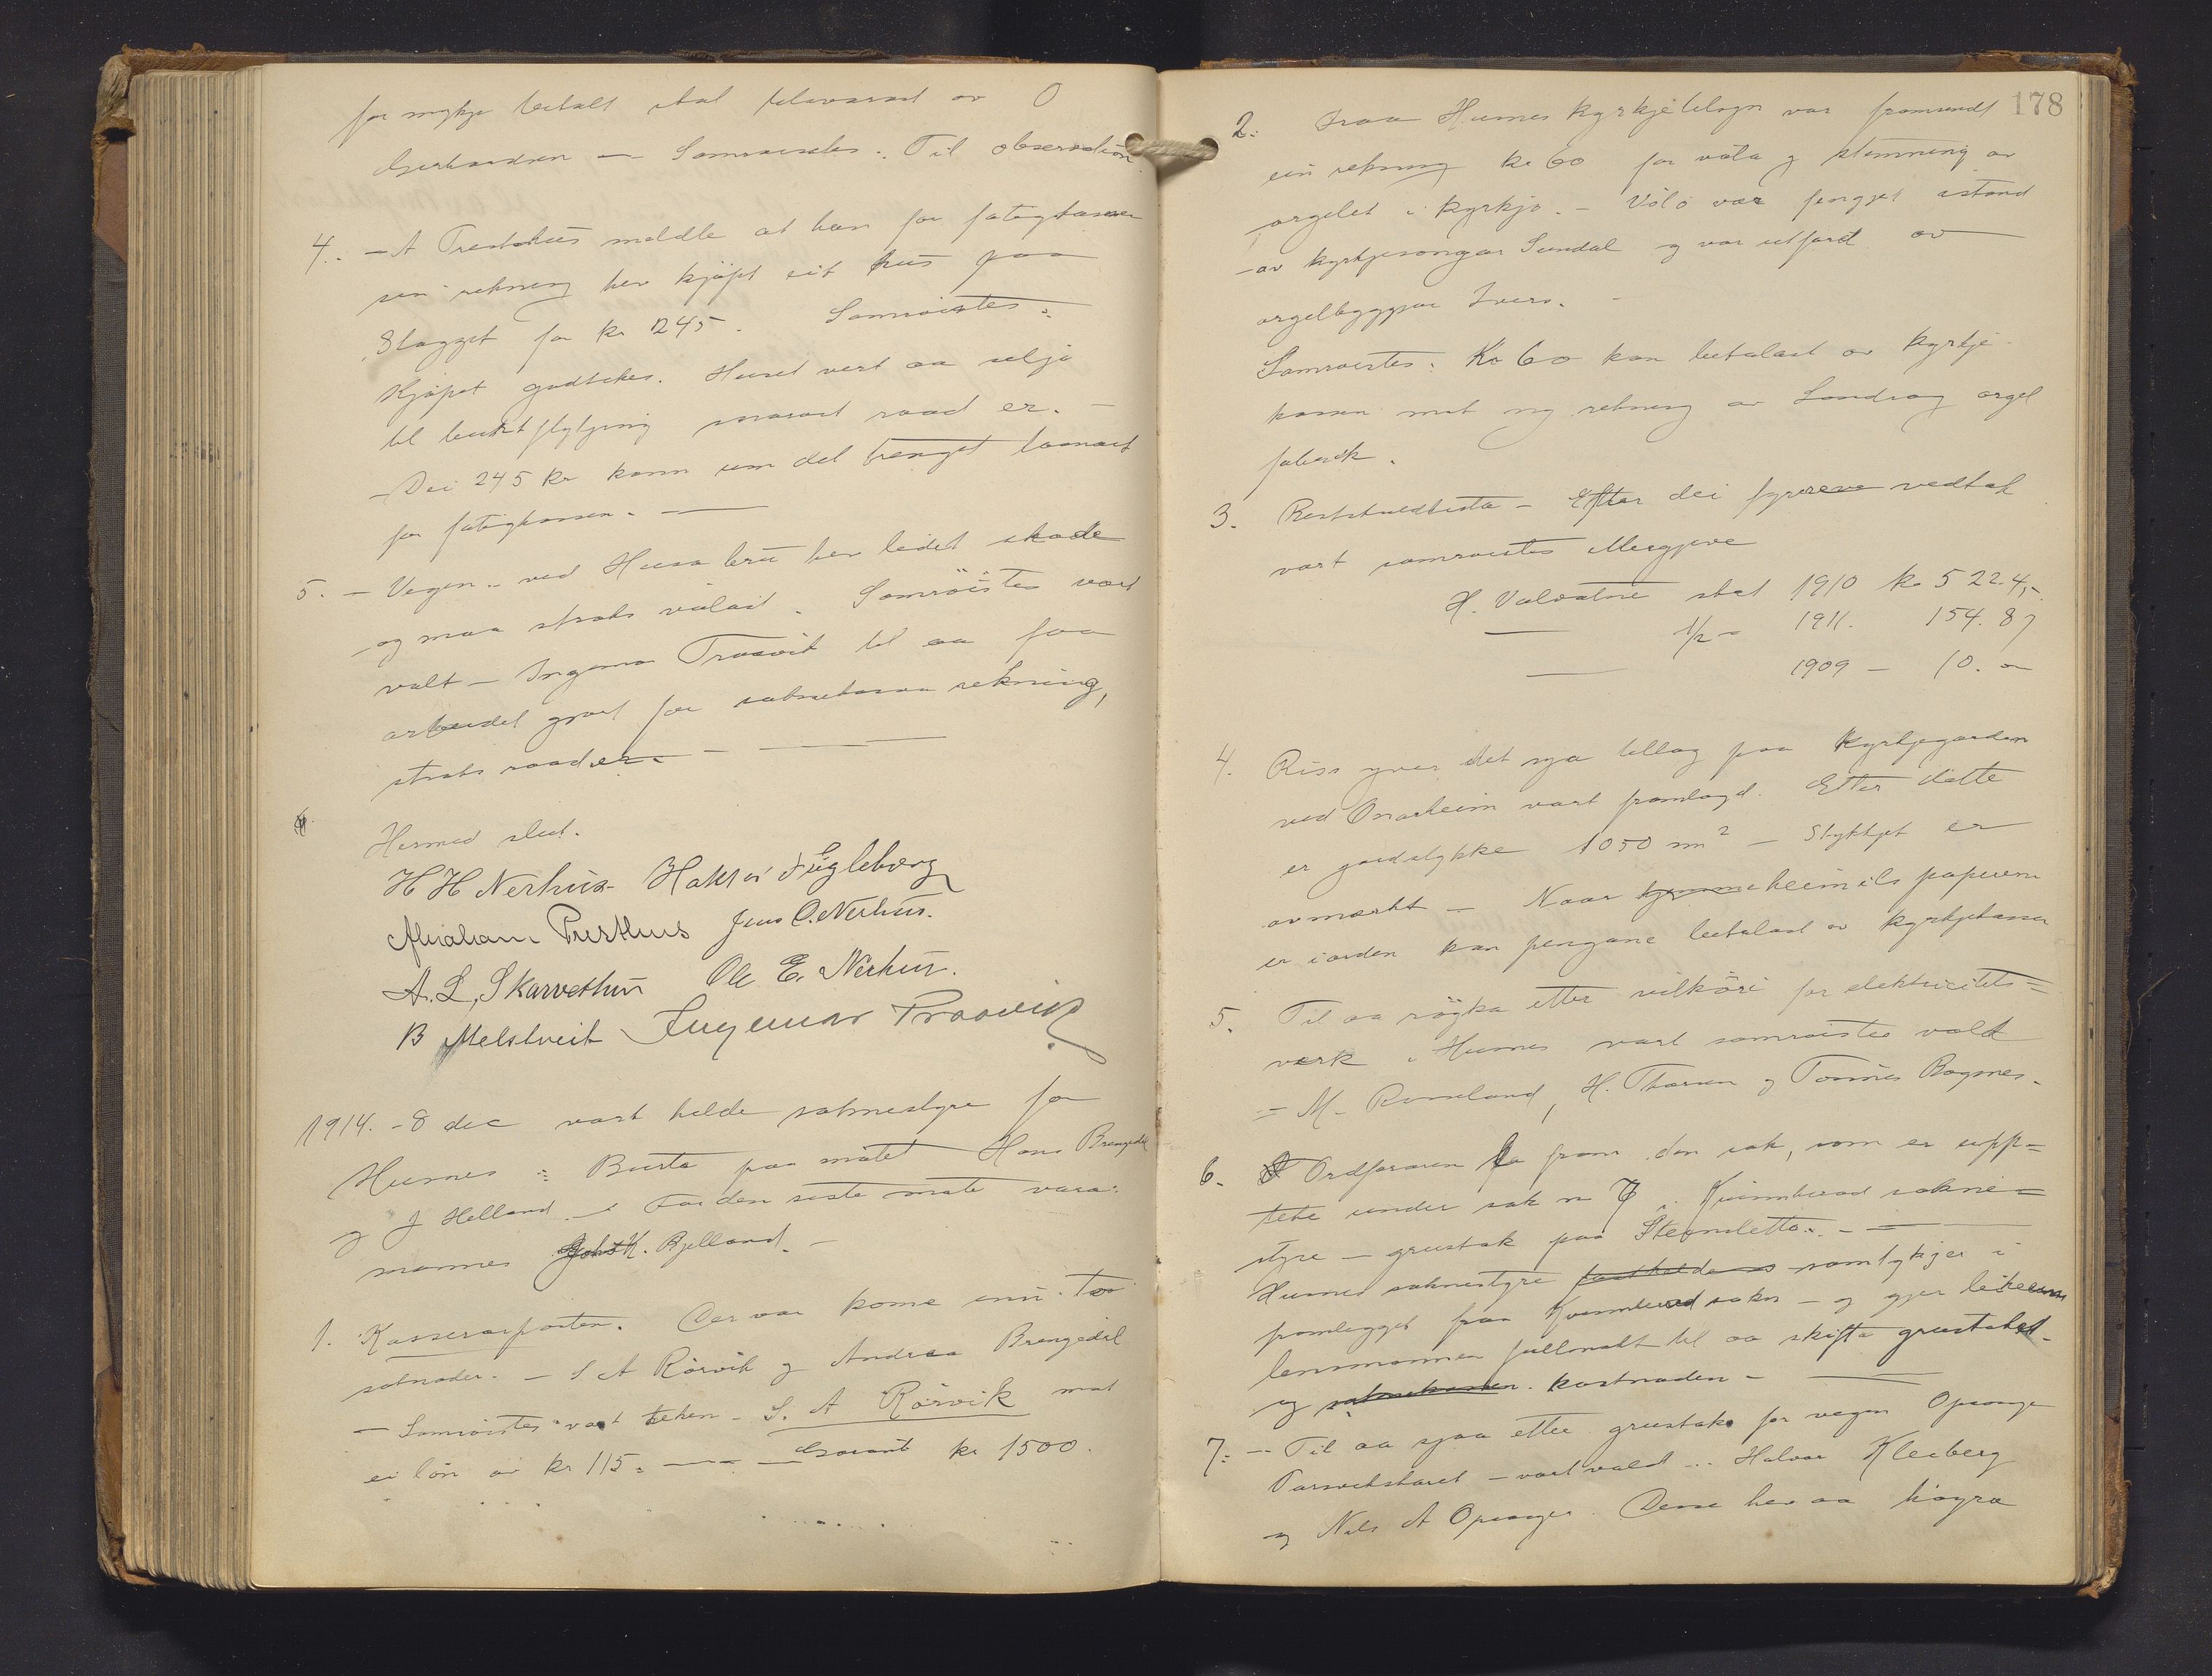 for mykje betalt skal tilsvarast av O
Gerhardsen — Samrøistes. Til observation
4. — A Prestehus meldte at han for fatigkassen
sin rekning hev kjøpt eit hus paa
Slagget for kr 245. Samrøistes:
Kjøpet godtekes. Huset vert aa selja
til burtflytjing snarast raad er. —
— Dei 245 kr kann um det trengst laanast
for fatigkassen. —
5. — Vegen ved Husa bru hev leidet skade
og maa straks vølast. Samrøistes vart
valt — Ingemar Traavik til aa faa
arbeidet gjort for soknekassa rekning,
straks raad er. — —
Hermed slut.
H H Nerhus Haktor Fugleberg
Abraham Presthus Jens O. Nerhus.
A. L. Skarvethun Ole E. Nerhus.
B Melstveit Ingemar Traavik
1914. - 8 dec vart helde soknestyre for
Husnes: Burte paa møtet Hans Brangedal
og J Helland — For den siste møte vara-
mannes Johs K. Bjelland. —
1. Kasserarposten. Der var kome inn to
søknader. — S A Rørvik og Andreas Brangedal
— Samrøistes vart teken — S. A Rørvik mot
ei løn av kr 115. — — Garanti kr 1500.
178
2. Fraa Husnes kyrkjetilsyn var framsendt
ein rekning kr 60 for vøla og stemning av
orgelet i kyrkja. — Vøla var fenget istand
av kyrkjesongar Sundal og var utført av
orgelbyggjar Ivers. —
Samrøistes: Kr 60 kan betalast av kyrkje-
kassen mot ny rekning av Landrog orgel
fabrik.
3. Restskuldlista — Efter dei fyrreve vedtak
vart samrøistes ettergjeve
H. Valvatne skat 1910 kr 522.45
— 1/2 — 1911. 154.87
— 1909 — 10. —
4. Riss yver det nya tillag paa Kyrkjegarden
ved Onarheim vart framlagd. Etter dette
er jordstykke 1050 m² — Stykkjet er
avmerkt — Naar hjemme heimils papierne
er iorden kan pengane betalast av kyrkjekassa
5. Til aa røgka etter vilkøri for elektricitets=
verk i Husnes vart samrøistes vald
= M. Røssland, H. Thorsen og Tønnes Bogsnes.
6. Ordføraren la fram den sak, som er upp=
teke under sak nr 7 i Kvinnherad sokne=
styre — grustak paa Steinsletto. — —
Husnes soknestyre fastheldes samtykjer i
framlegget fraa Kvinnherad sokn — og gjer likeeins
lensmannen fullmakt til aa skifta grustaket
og soknekassen. kostnaden — —
7. — Til aa sjaa etter grustak for vegen Opsanger
Tarveitskaret — vart vald... Halvor Kleiberg
og Nils A Opsanger. Desse hev aa høyra